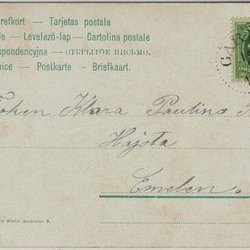 refkort — Tarjetas postale
fe — Levelező-lap — Cartolina postale
spondencyjna — ОТКРЫТОЕ ПИСЬМО.
nice — Postkarte — Briefkaart.
Klara Paulina
Hajsta
Emelon